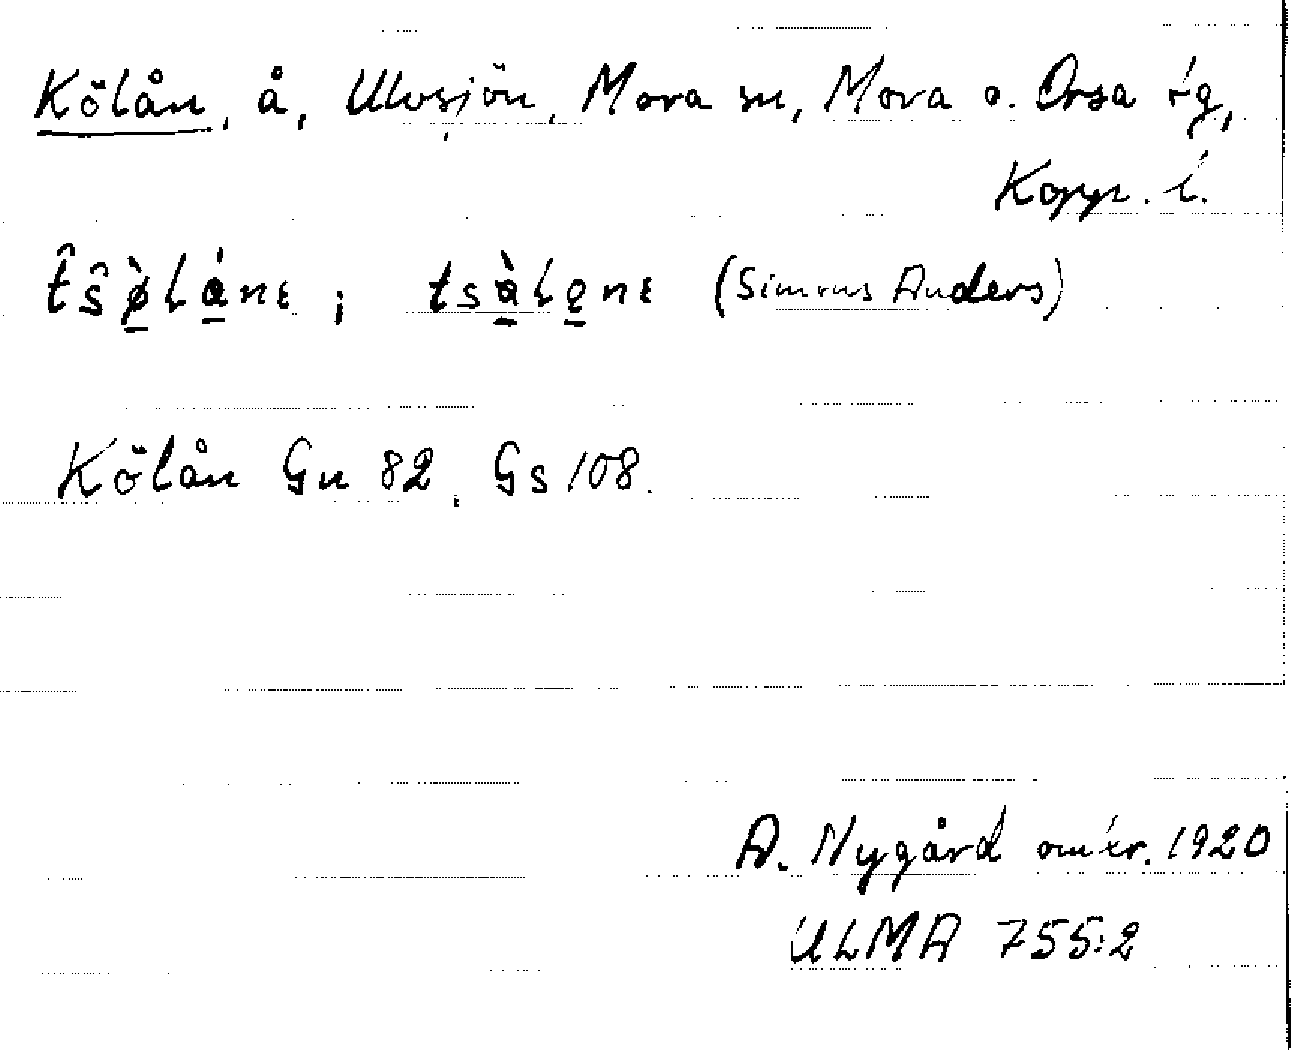 Kölån, å, Ulvsjön, Mora sn, Mora o. Orsa tg,
Kopp. l.
t̂ŝø̠̀lá̠nɛ ; tsà̠lo̠nɛ (Simons Anders)
Kölån Gn 82, Gs 108.
A. Nygård omkr. 1920
ULMA 755:2